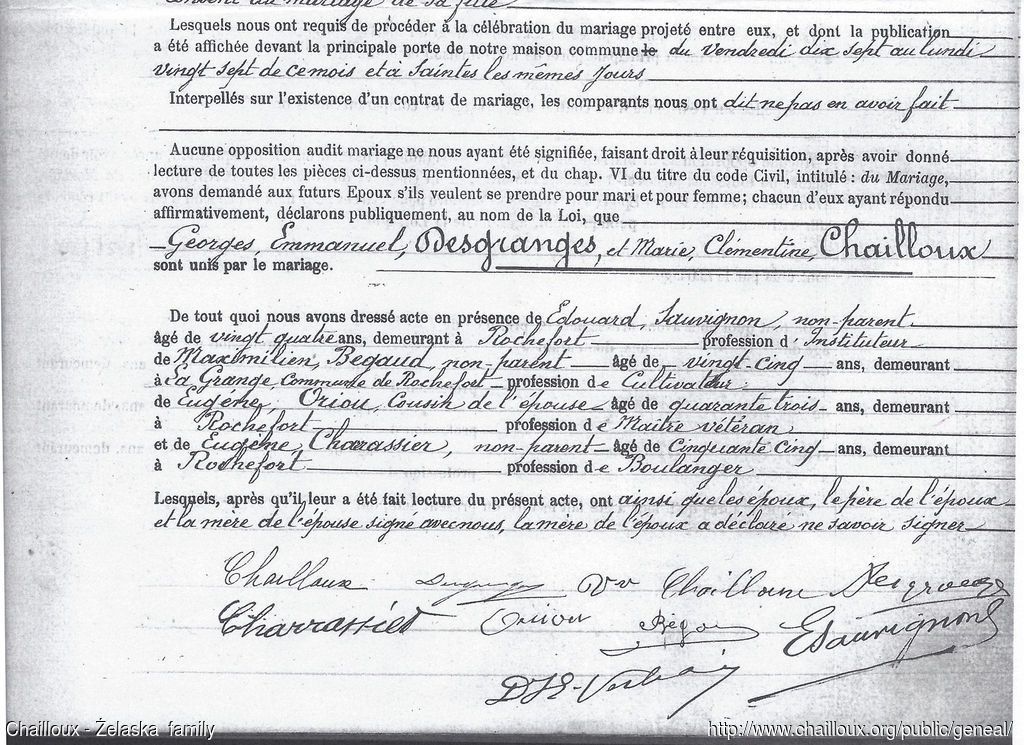 consent au mariage de sa fille
Lesquels nous ont requis de procéder à la célébration du mariage projeté entre eux, et dont la publication
a été affichée devant la principale porte de notre maison commune le du Vendredi dix sept au lundi
vingt sept de ce mois et à Saintes les mêmes jours
Interpellés sur l'existence d'un contrat de mariage, les comparants nous ont dit ne pas en avoir fait
Aucune opposition audit mariage ne nous ayant été signifiée, faisant droit à leur réquisition, après avoir donné
lecture de toutes les pièces ci-dessus mentionnées, et du chap. VI du titre du code Civil, intitulé : du Mariage,
avons demandé aux futurs Epoux s'ils veulent se prendre pour mari et pour femme; chacun d'eux ayant répondu
affirmativement, déclarons publiquement, au nom de la Loi, que
Georges, Emmanuel, Desgranges, et Marie, Clémentine, Chailloux
sont unis par le mariage.
De tout quoi nous avons dressé acte en présence de Edouard, Sauvignon, non-parent.
âgé de vingt quatre ans, demeurant à Rochefort profession d'Instituteur
de Maximilien, Begaud, non-parent âgé de vingt-cinq ans, demeurant
à La Grange, Commune de Rochefort profession de Cultivateur
de Eugène, Oriou, Cousin de l'épouse âgé de quarante trois ans, demeurant
à Rochefort profession de Maître vétéran
et de Eugène, Charassier, non-parent âgé de Cinquante cinq ans, demeurant
à Rochefort profession de Boulanger
Lesquels, après qu'il leur a été fait lecture du présent acte, ont ainsi que les époux, le père de l'époux
et la mère de l'épouse signé avec nous, la mère de l'époux a déclaré ne savoir signer
Chailloux Desgranges Vve Chailloux Desgranges
Charrassier Oriou Bégau ESauvignon
Chailloux - Żelaska family http://www.chailloux.org/public/geneal/